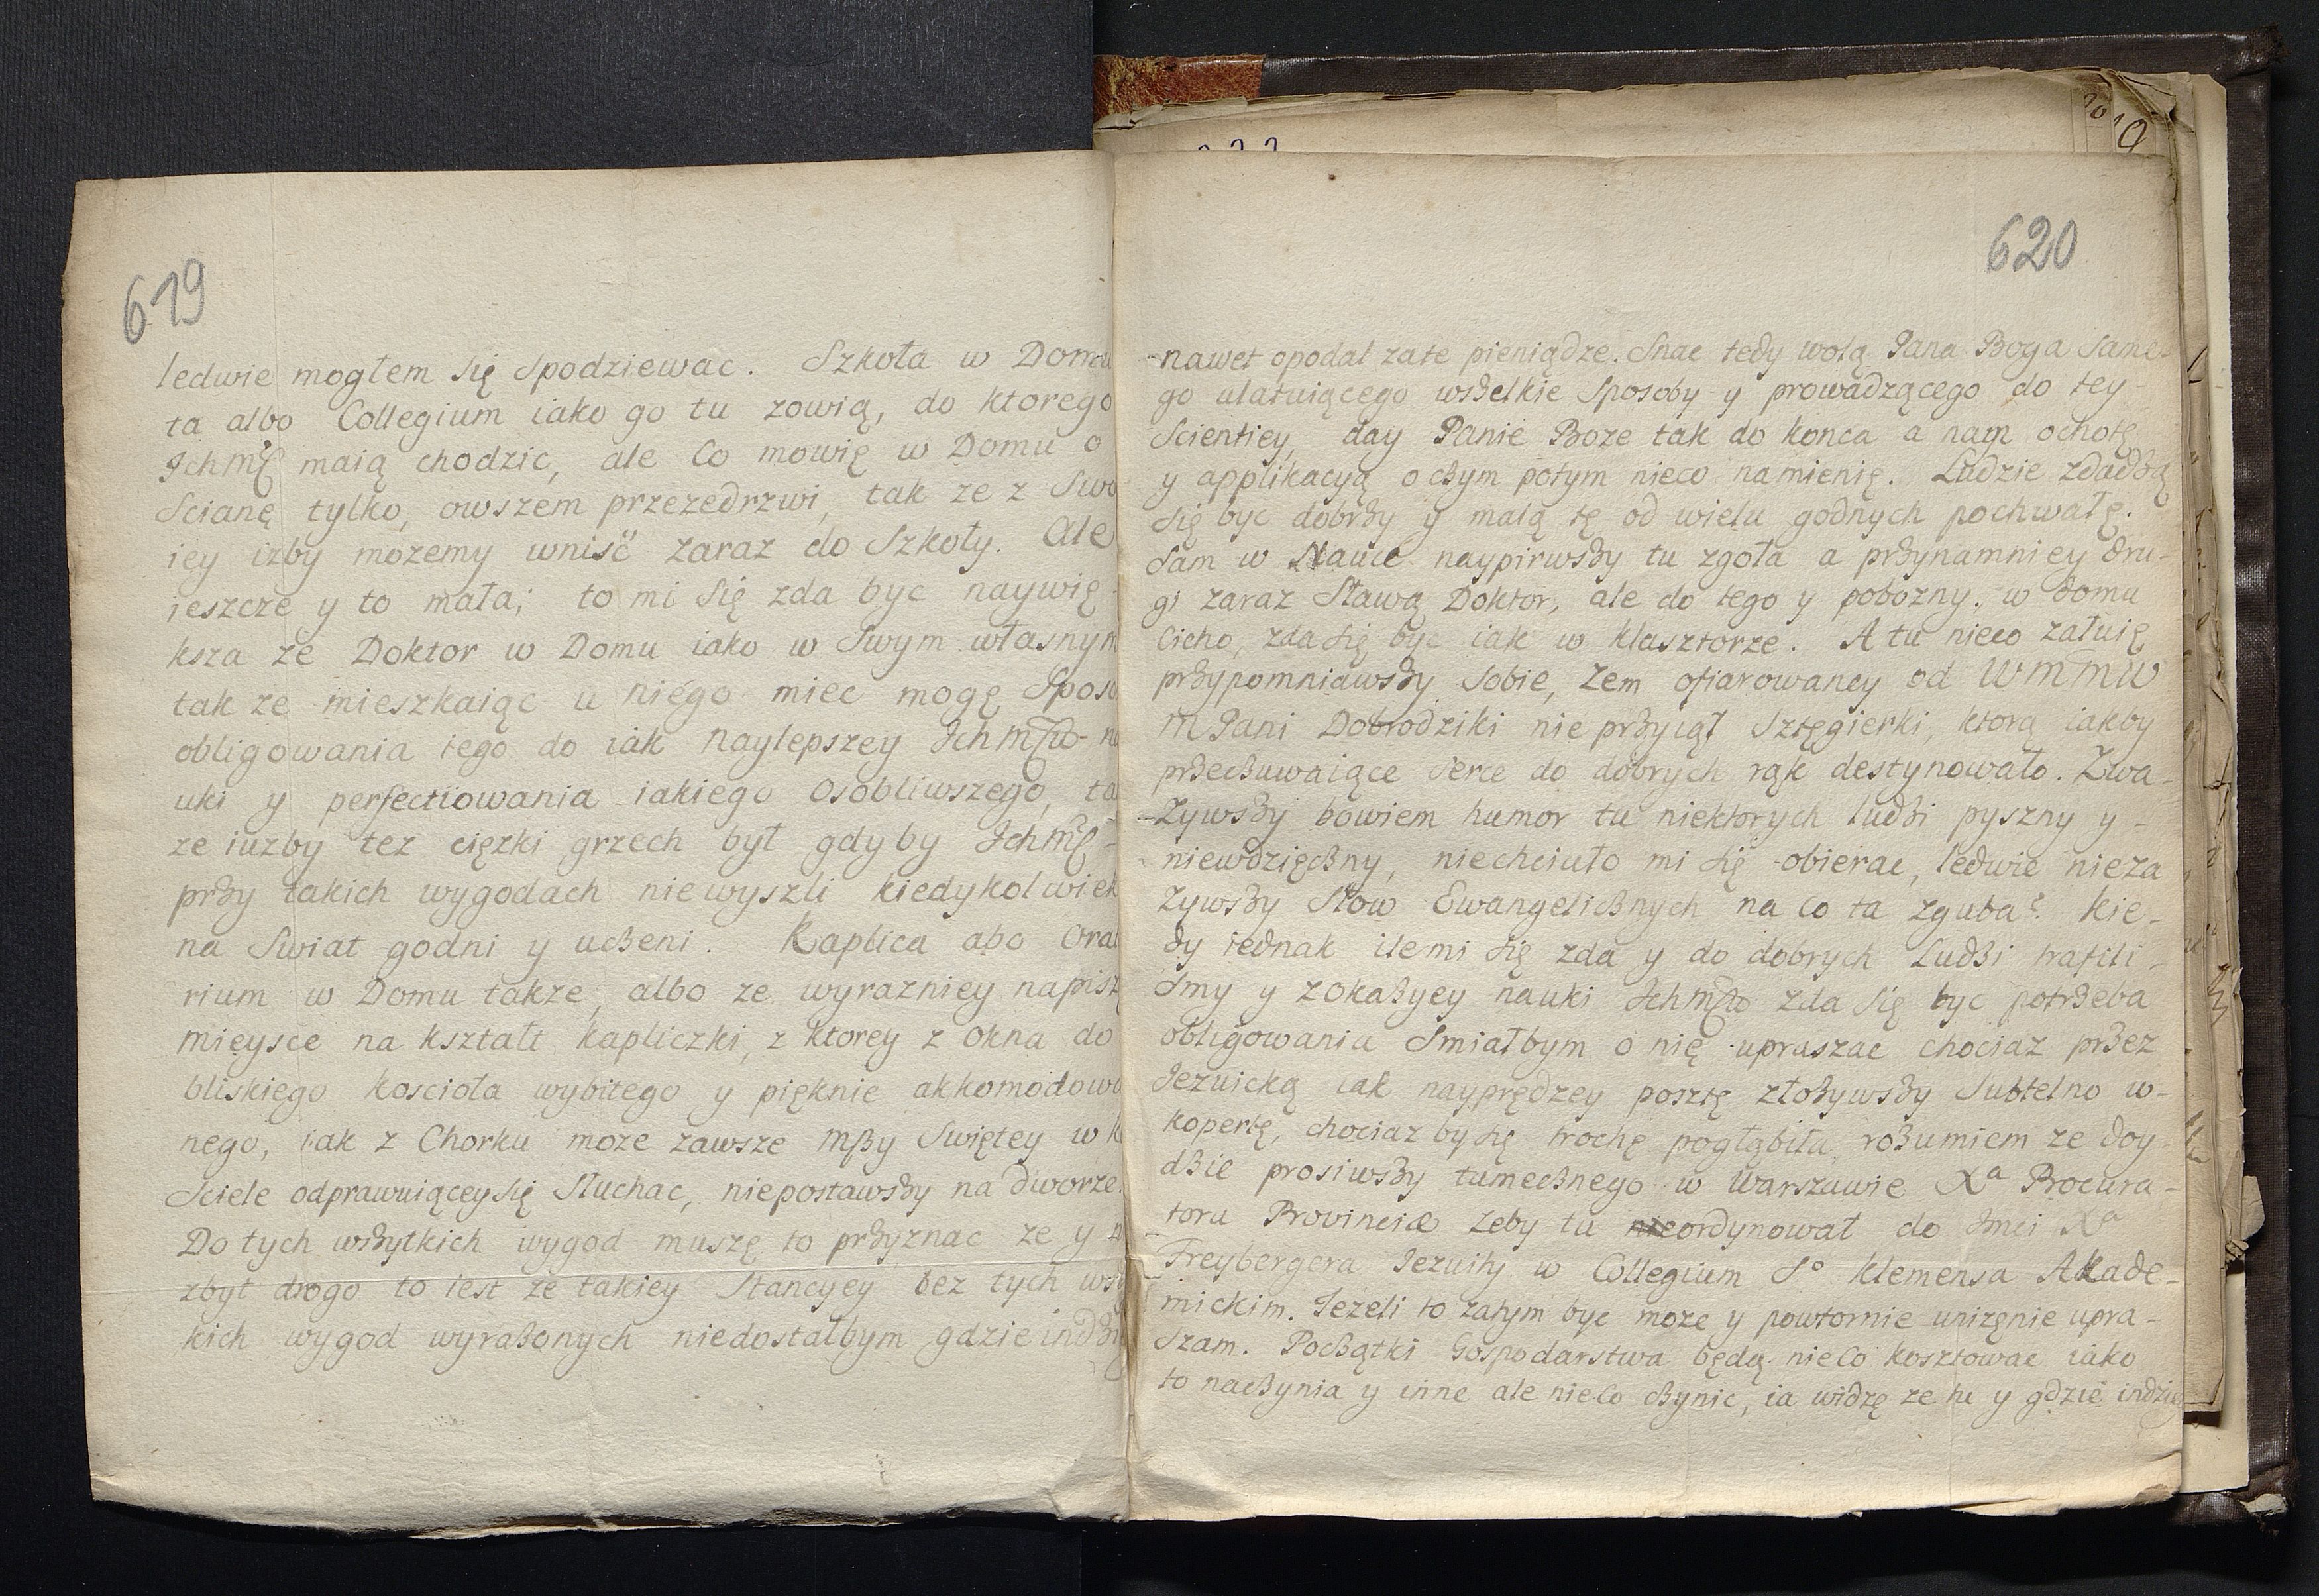 619
ledwie mogłem się spodziewac. Szkoła w Domu
ta albo Collegium iako go tu zowią, do ktorego
Ichmć maią chodzic, ale co mowię w Domu o
scianę tylko, owszem przezedrzwi, tak ze z Swo
iey izby mozemy wniść zaraz do Szkoły. Ale
ieszcze y to mała; to mi się zda byc naywię-
ksza ze Doktor w Domu iako w Swym własnym
tak ze mieszkaiąc u niego miec mogę Sposo
obligowania iego do iak naylepszey Ichmćw na
uki y perfectiowania iakiego osobliwszego, ta
ze iuzby tez cięzki grzech był gdyby Ichmć-
przy takich wygodach niewyszli kiedykolwiek
na Swiat godni y uczeni. Kaplica abo Ora
rium w Domu takze, albo ze wyrazniey napisz
mieysce na kształt kapliczki, z ktorey z okna do
bliskiego koscioła wybitego y pięknie akkomodowa
nego, iak z Chorku moze zawsze Mßy Swiętey w k
sciele odprawuiącey się słuchac, niepostawszy na dworze.
Do tych wszytkich wygod muszę to przyznac ze y n
zbyt drogo to iest ze takiey Stancyey bez tych wsz
kich wygod wyrazonych niedostałbym gdzieindzi
620
nawet opodal zate pieniądze. Snac tedy wolą Pana Boga same-
go ułatuiącego wszelkie Sposoby y prowadzącego do tey-
Scientiey, day Panie Boze tak do konca a nam ochotę
y applikacyą o czym potym nieco namienię. Ludzie zdadzą
się byc dobrzy y maią tę od wielu godnych pochwałę.
Sam w Nauce naypirwszy tu zgoła a przynamniey dru-
gi zaraz Sławą Doktor, ale do tego y pobozny. w domu
cicho, zda się byc iak w klasztorze. A tu nieco załuię
przypomniawszy sobie, Zem ofiarowaney od WMMW
MPani Dobrodziki nie przyiął Sztęgierki, ktorą iakby
przeczuwaiące serce do dobrych rąk destynowało. Zwa-
-zywszy bowiem humor tu niektorych ludzi pyszny y-
niewdzięczny, niechciało mi się obierac, ledwie nieza
zywszy Słow Ewangelicznych na co ta zguba? kie-
dy iednak ile mi się zda y do dobrych Ludzi trafili-
smy y zokazyey nauki Ichmćw zda się byc potrzeba
obligowania Smiałbym o nię upraszac chociaz przez
Jezuicką iak nayprędzey posztę złozywszy Subtelno w-
kopertę, chociaz by się trochę pogłąbiła, rozumiem ze doy-
dzie prosiwszy tumecznego w Warszawie Xa Procura-
tora Provinciæ zeby tu ordynował do Jmci Xa
Freybergera Jezuity w Collegium So Klemensa Akade-
mickim. Jezeli to zatym byc moze y powtornie unizęnie upra-
szam. Początki Gospodarstwa będą nieco kosztowac iako
to naczynia y inne ale nieco czynic, ia widzę ze tu y gdzie indzie